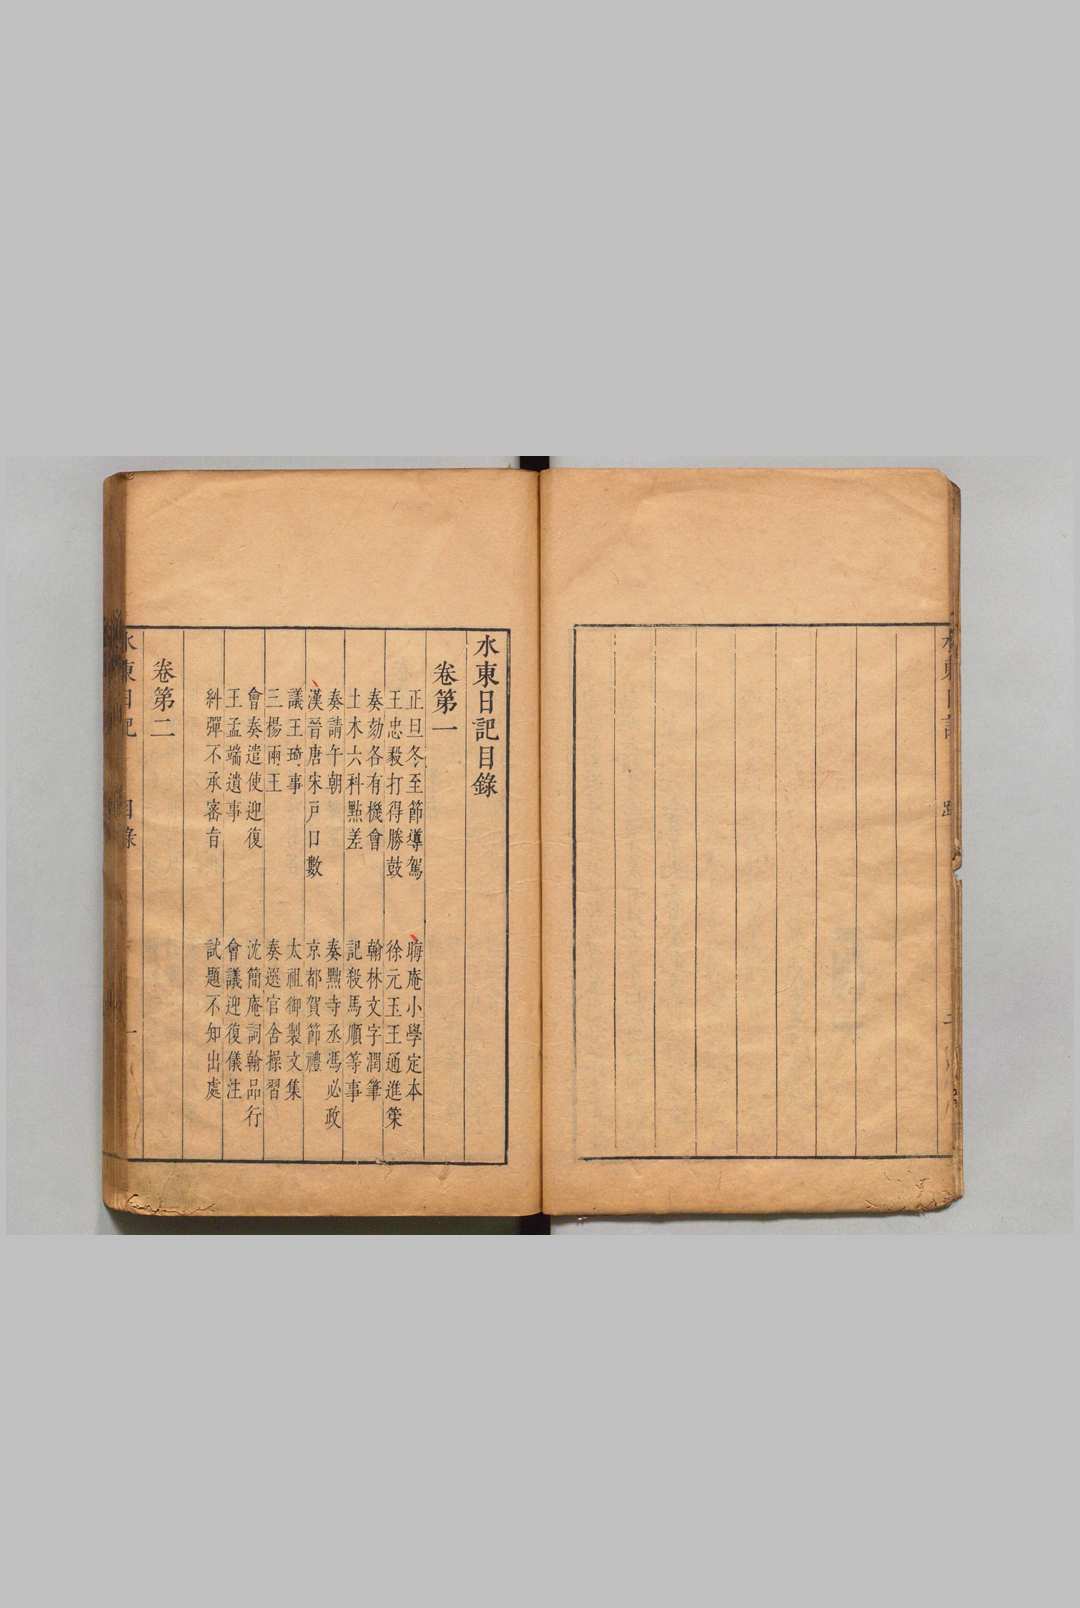 水東日記目錄
卷第一
正旦冬至節導駕
晦庵小學定本
王忠毅打得勝鼓
徐元玉王通進榮
奏劾各有機會
翰林文字潤筆
土木六科點差
記殺馬順等事
奏請午朝
奏黜寺丞馮必政
漢晉唐宋戸口數
京都賀節禮
議王琦事
太祖御製文集
三楊兩王
奏選官舍操習
會奏遣使迎復
沈簡庵詞翰品行
王孟端遺事
會議迎復儀注
糾彈不承審旨
試題不知出處
卷第二
水東日記 目錄 一